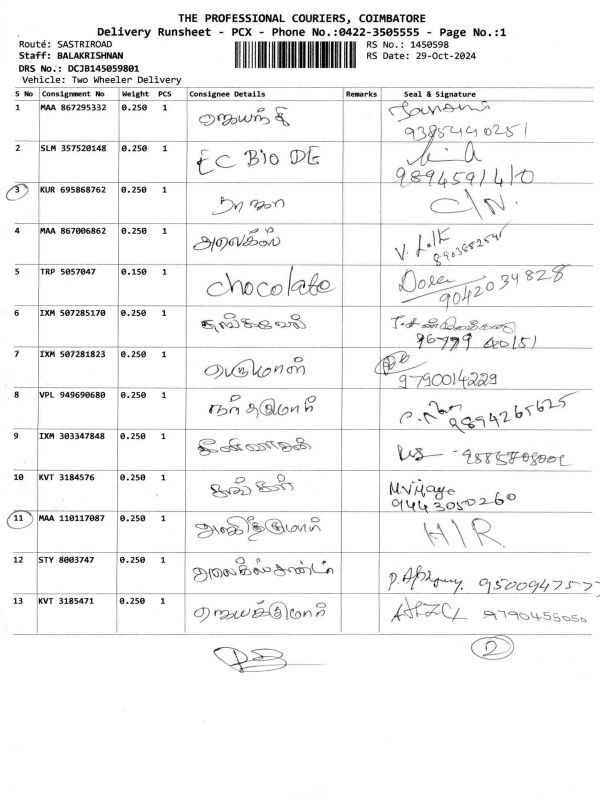 THE PROFESSIONAL COURIERS, COIMBATORE
Delivery Runsheet - PCX - Phone No.:0422-3505555 - Page No.:1
Route: SASTRIROAD RS No.: 1450598
Staff: BALAKRISHNAN RS Date: 29-Oct-2024
DRS No.: DCJB145059801
Vehicle: Two Wheeler Delivery
S No Consignment No Weight PCS Consignee Details Remarks Seal & Signature
1 MAA 867295332 0.250 1 ஜெயந்தி
9385440251
2 SLM 357520148 0.250 1 EC BIO DE
9894591410
3 KUR 695868762 0.250 1 C/N.
4 MAA 867006862 0.250 1 அலைக்ஸ் V. Lalk
5 TRP 5057047 0.150 1 chocolate
9042034828
6 IXM 507285170 0.250 1 தங்கவேல்
7 IXM 507281823 0.250 1 பெருமாள்
9790014229
8 VPL 949690680 0.250 1 நந்தகுமார்
9894265625
9 IXM 303347848 0.250 1
10 KVT 3184576 0.250 1 சங்கர் M.Vijaya
9443050260
11 MAA 110117087 0.250 1 H/R
12 STY 8003747 0.250 1 அலைக்ஸ்சாண்டர்
13 KVT 3185471 0.250 1 ஜெயக்குமார் 9790455050
2